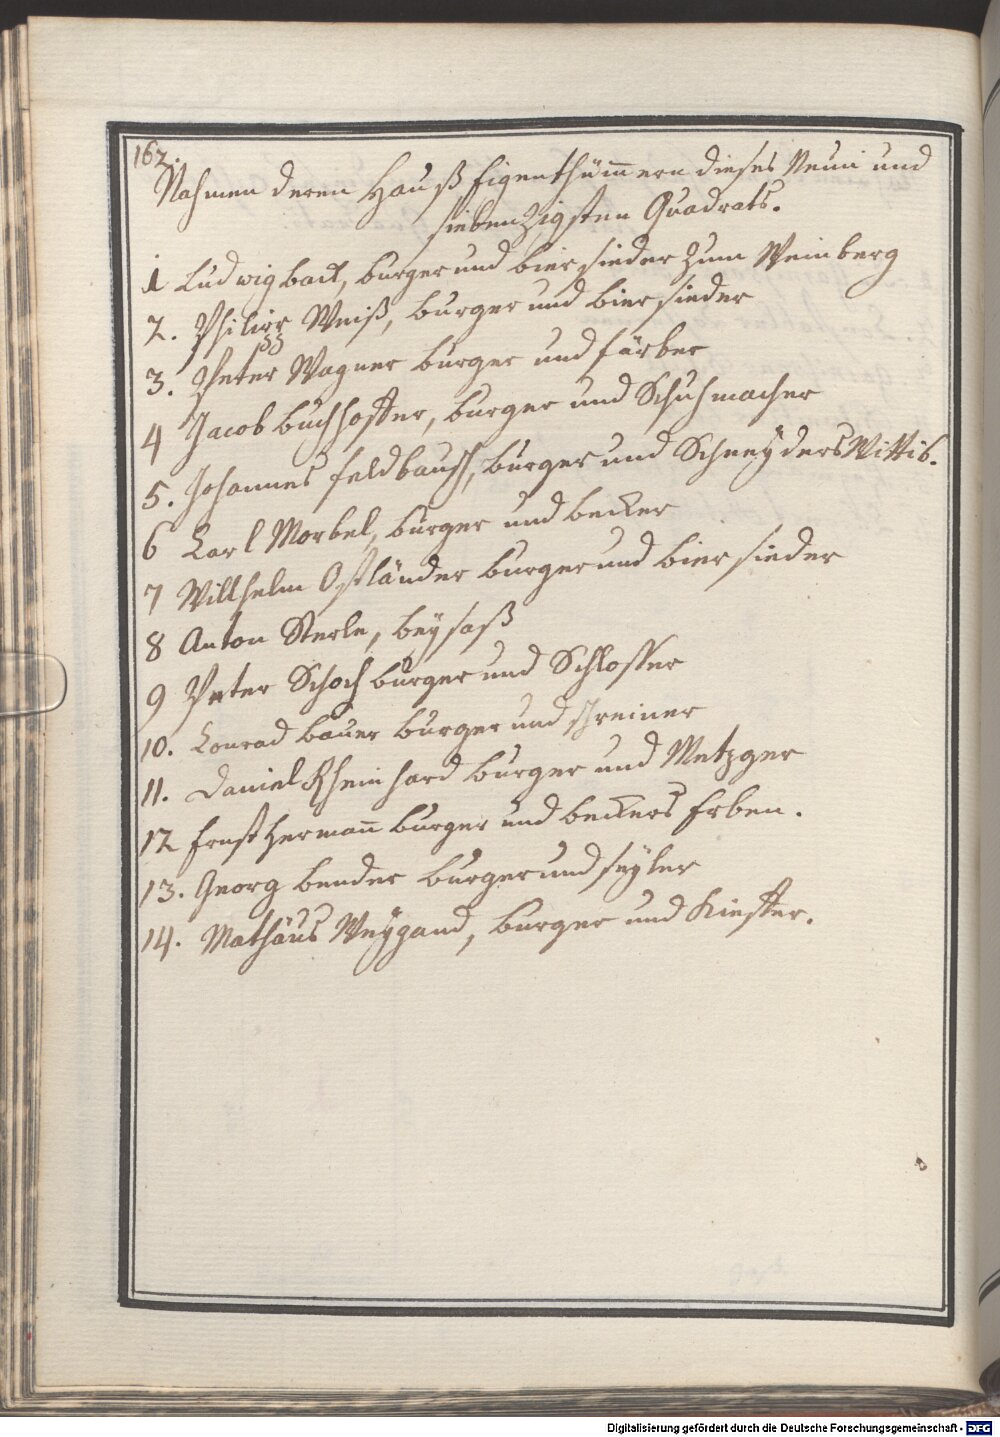 162.
Nahmen deren Hauß Eigenthüm̅ern dieses Neun und
siebenzigsten Quadrats.
1 Ludwig back, burger und bier sieder zum Weinberg
2. Philipp Weiß, burger und bier sieder
3. Peter Wagner burger und färber
4 Jacob buchhoffer, burger und Schuhmacher
5. Johannes feldbausch, burger und Schneÿders Wittib.
6 Carl Morbel, burger und becker
7 Willhelm Ostländer burger und bier sieder
8 Anton Sterle, beÿsaß
9 Peter Schoch burger und Schlosser
10. Conrad bauer burger und schreiner
11. Daniel Rheinhard burger und Metzger
12 Ernst Herman̅ burger und beckers Erben.
13. Georg bender burger und seÿler
14. Mathäus Weÿgand, burger und Kieffer.
Digitalisierung gefördert durch die Deutsche Forschungsgemeinschaft - DFG